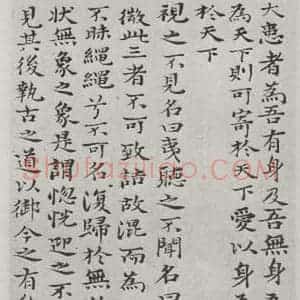 大患者為吾有身及吾無身
為天下則可寄於天下愛以身
於天下
視之不見名曰夷聽之不聞名曰
微此三者不可致詰故混而為
不昧繩繩兮不可名復歸於無
状無象之象是謂惚恍迎之不
見其後執古之道以御今之有